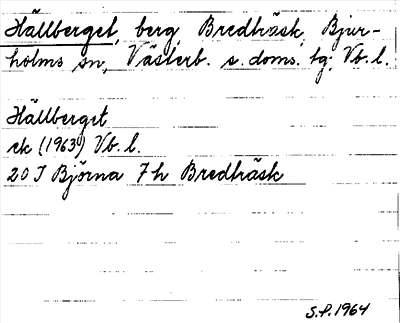 Hällberget, berg Bredträsk, Bjur-
holms sn, Västerb. s. doms. tg, Vb. l.
Hällberget
rk (1963) Vb. l.
20 J Björna 7 h Bredträsk
S.P. 1964